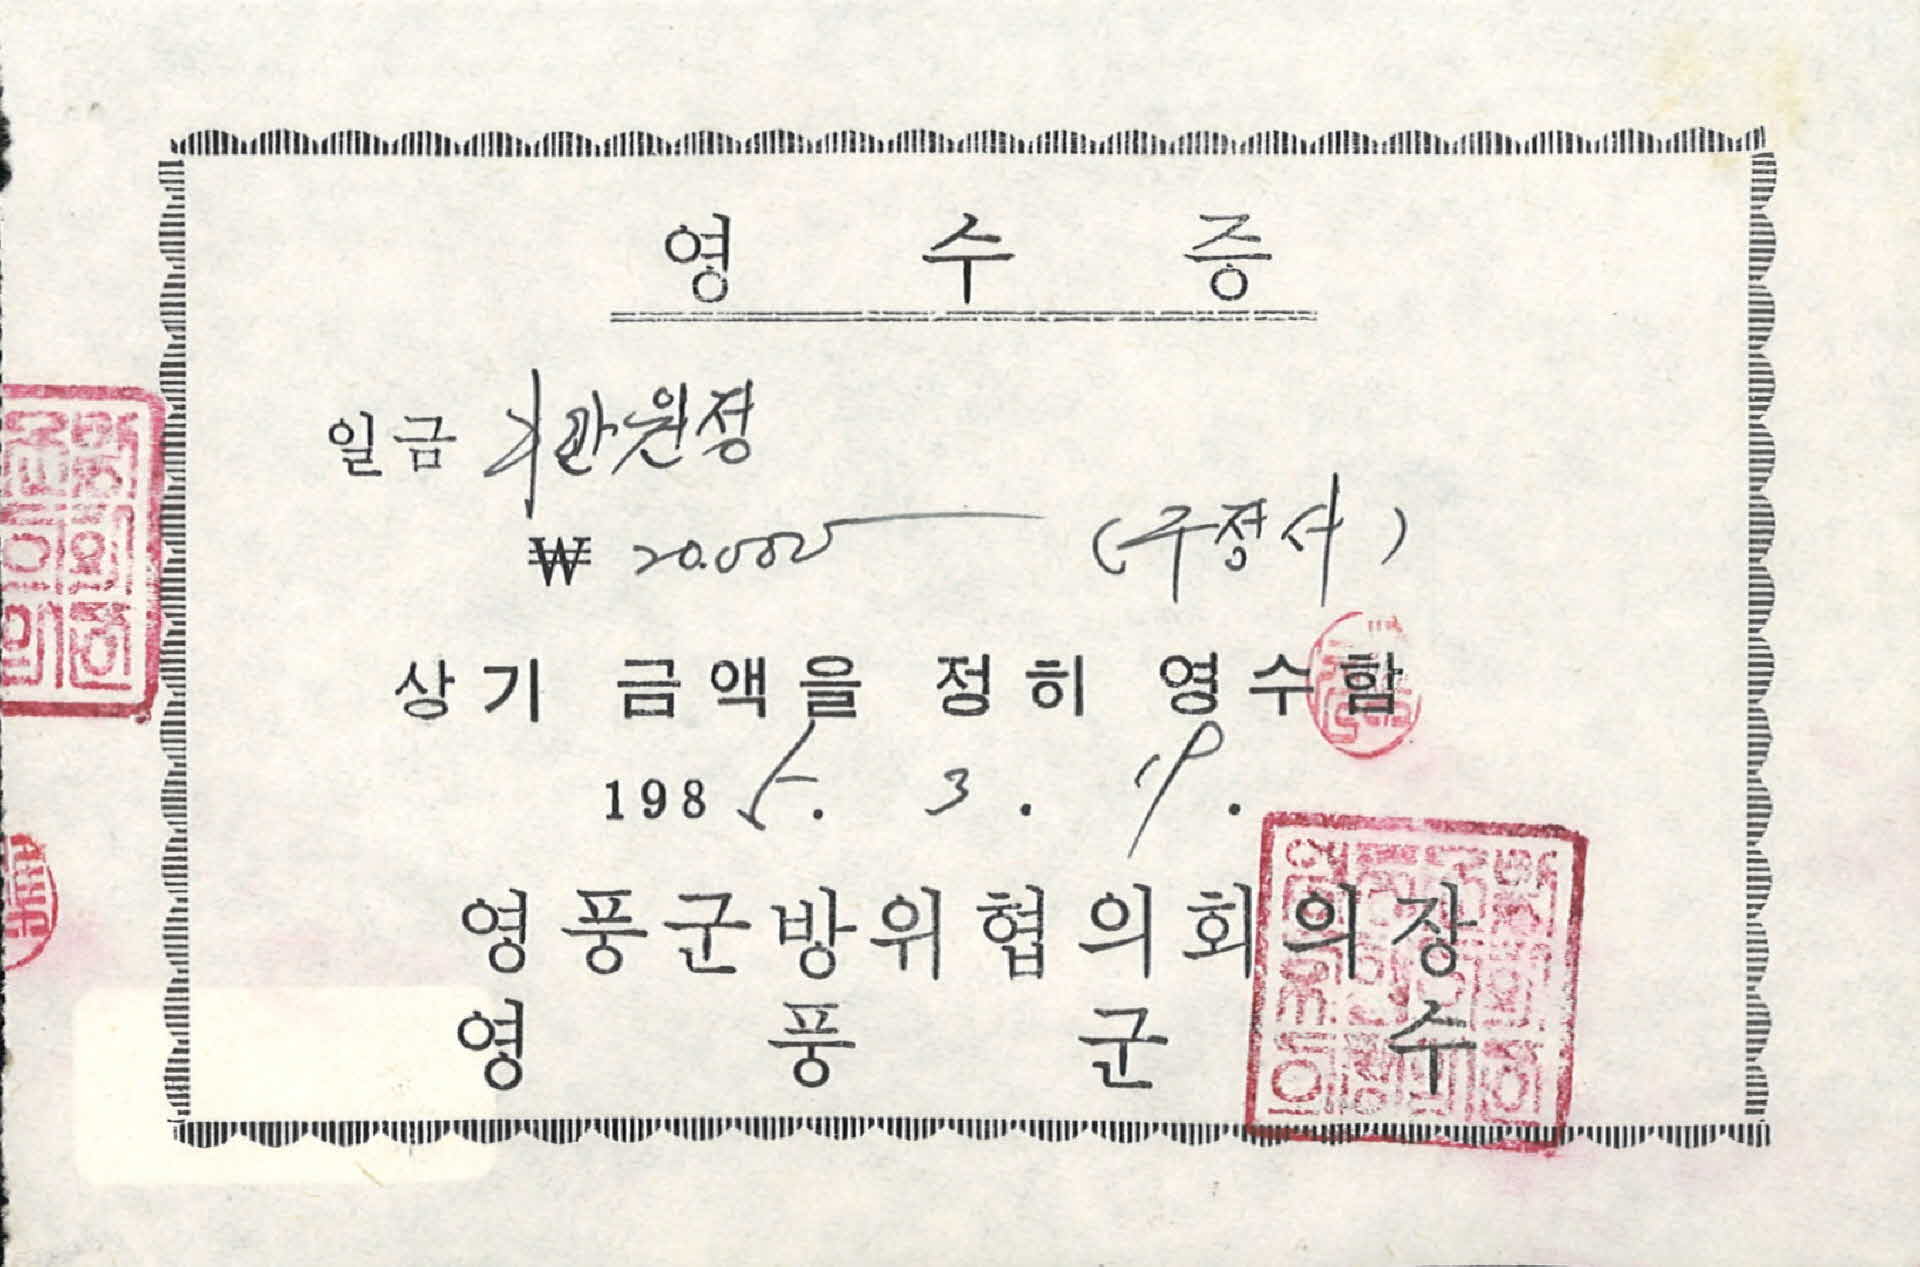 영 수 증
일금 이만원정
₩ 20.000 (구정서)
상기 금액을 정히 영수함
1985. 3. 19.
영풍군방위협의회의장
영 풍 군 수